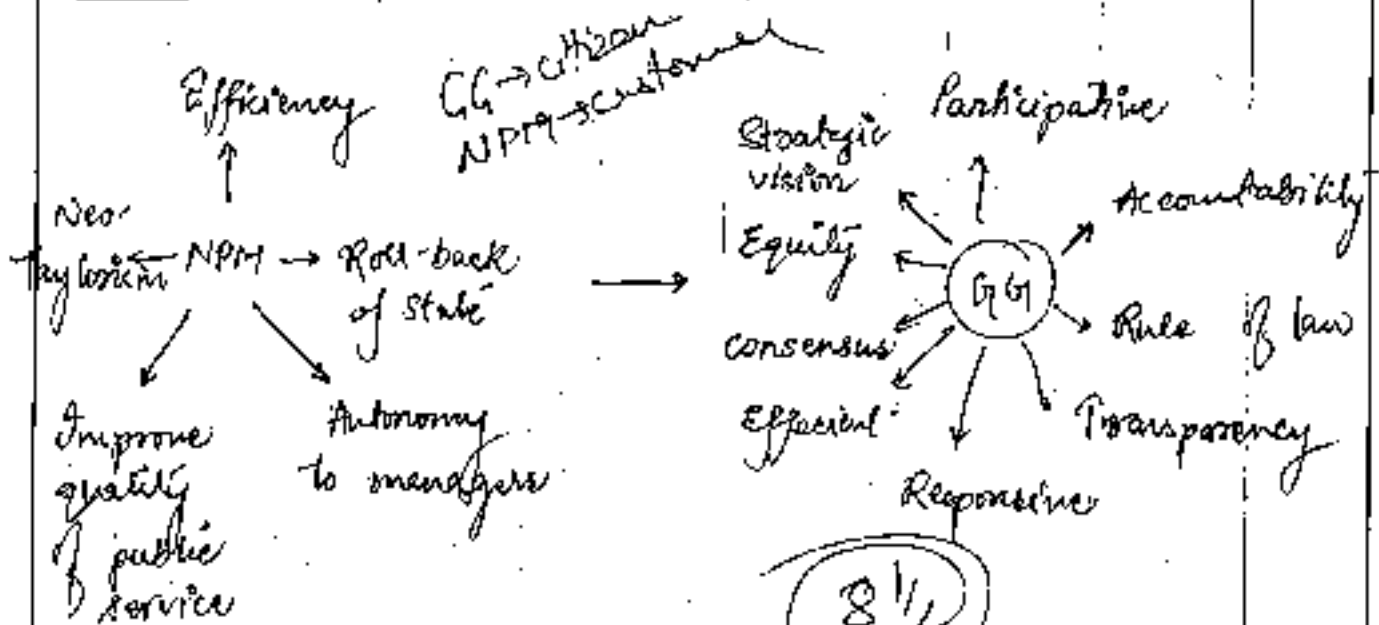 Efficiency
GG → citizen
NPM → customer
Neo-
Taylorism ← NPM → Roll-back
of state
Improve
quality
of public
service
Autonomy
to managers
→
Strategic
vision
Participative
Accountability
Equity
GG
consensus
Rule of law
Effecient
Transparency
Responsive
8 1/